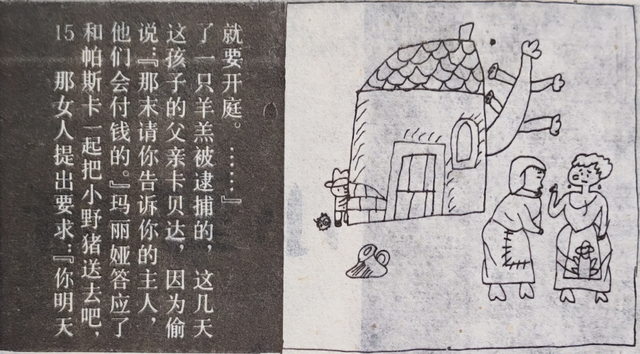 15 那女人提出要求:『你明天
和帕斯卡一起把小野猪送去吧,
他们会付钱的。』玛丽娅答应了
说:『那末请你告诉你的主人,
这孩子的父亲卡贝达,因为偷
了一只羊羔被逮捕的,这几天
就要开庭。……』